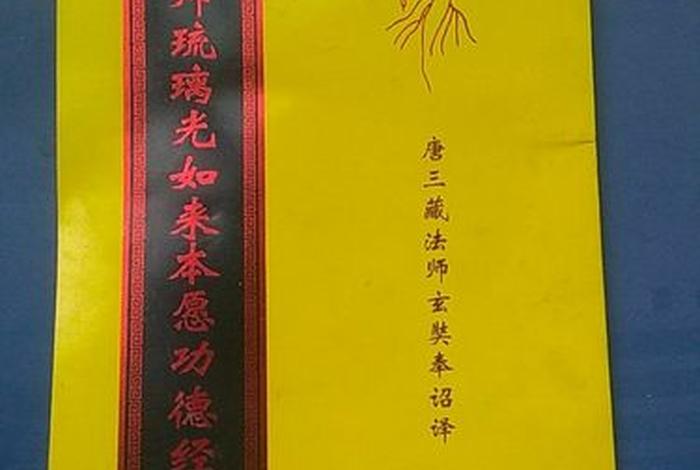 师琉璃光如来本愿功德经
唐三藏法师玄奘奉诏译